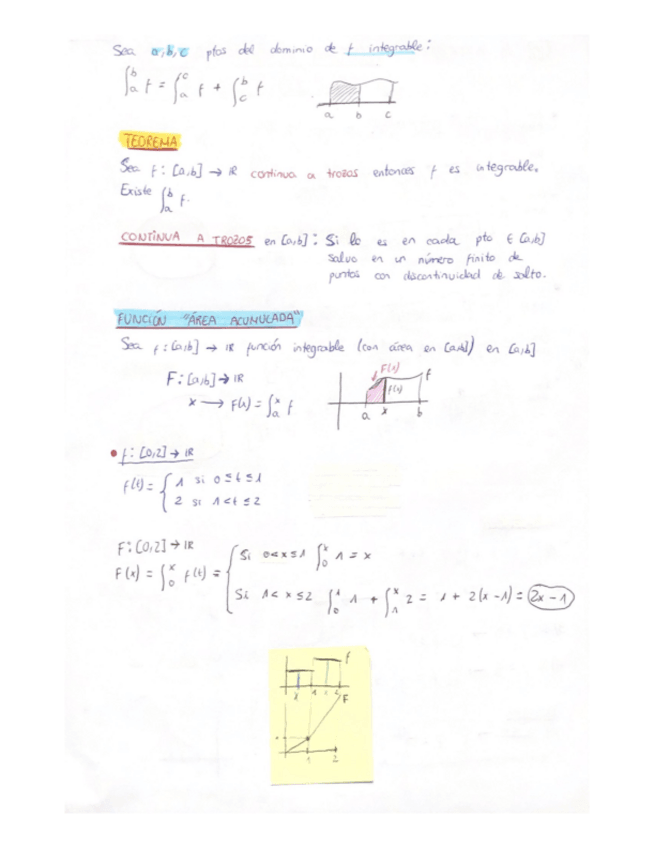 Sea a, b, c ptos del dominio de f integrable:
∫_a^b f = ∫_a^c f + ∫_c^b f
a b c
TEOREMA
Sea f: [a,b] → IR continua a trozos entonces f es integrable.
Existe ∫_a^b f.
CONTINUA A TROZOS en [a,b]: Si lo es en cada pto ∈ [a,b]
salvo en un número finito de
puntos con discontinuidad de salto.
FUNCIÓN "ÁREA ACUMULADA"
Sea f: [a,b] → IR función integrable (con área en [a,b]) en [a,b]
F: [a,b] → IR
x → F(x) = ∫_a^x f
F(x) f
f(x)
a x b
• f: [0,2] → IR
f(t) = { 1 si 0 ≤ t ≤ 1
2 si 1 < t ≤ 2
F: [0,2] → IR
F(x) = ∫_0^x f(t) = { Si 0<x≤1 ∫_0^x 1 = x
Si 1< x ≤2 ∫_0^1 1 + ∫_1^x 2 = 1 + 2(x-1) = 2x-1
f
F
1 2